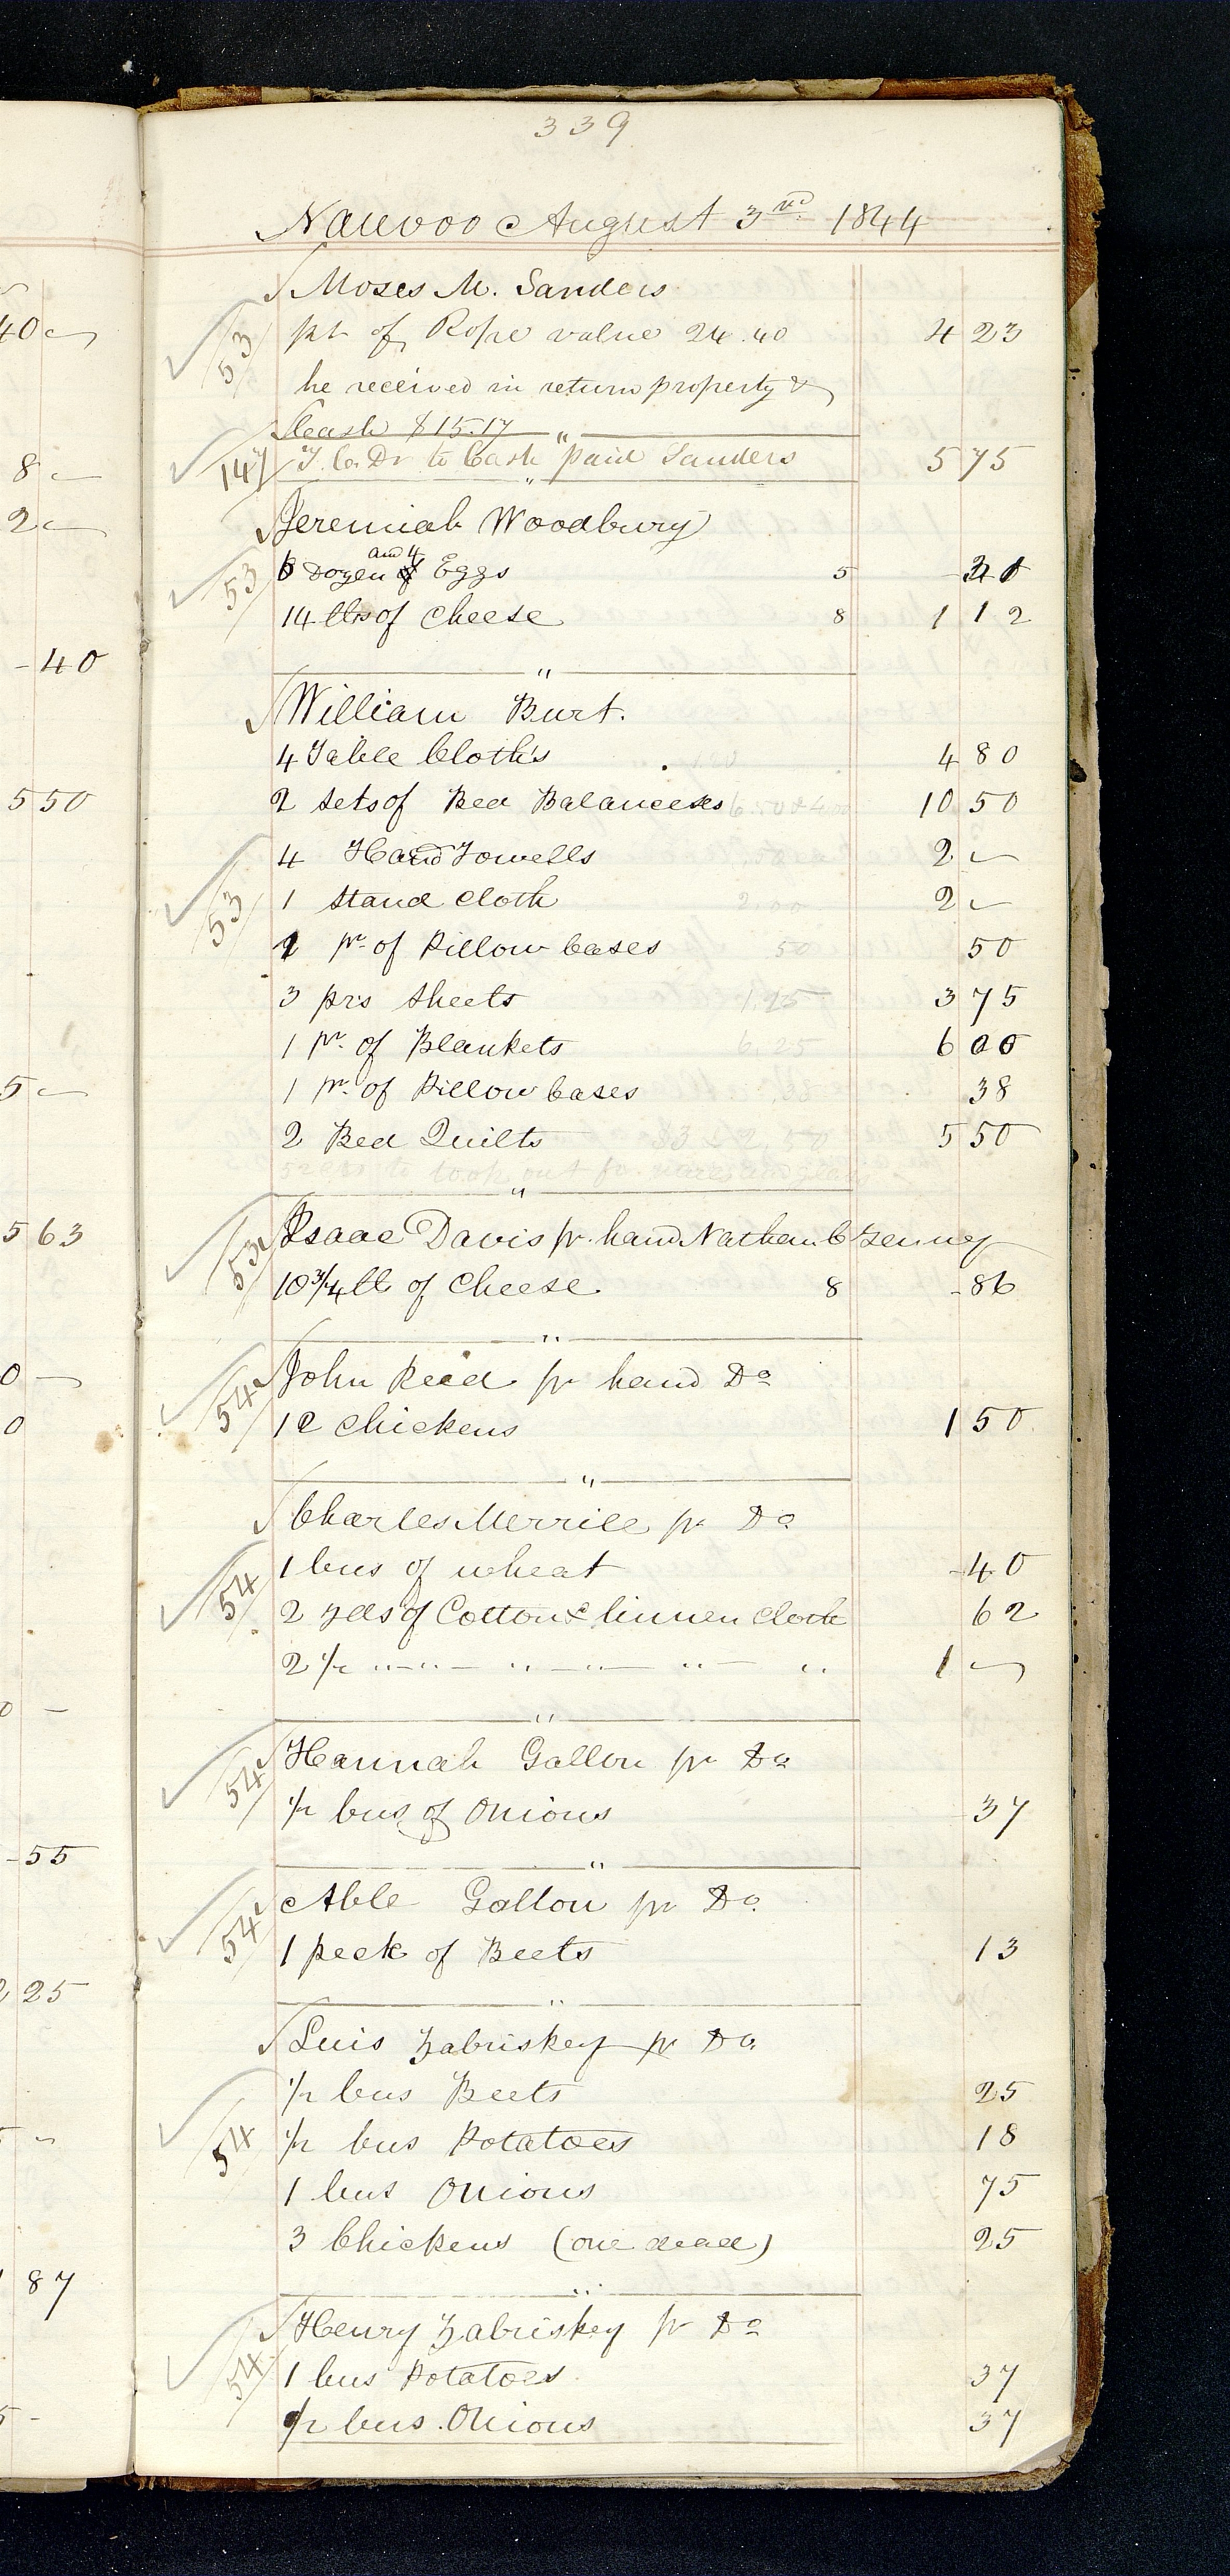 339
Nauvoo August 3rd 1844
Moses M. Sanders
53 pt of Rope value 24.40 4 23
he received in return property &
Cash $15.17
147 T. C. Dr to Cash paid Sanders 5 75
Jeremiah Woodbury
53 6 Dozen and 4 Eggs 5
14 lbs of Cheese 8 1 12
William Burt.
4 Table Cloths 4 80
2 sets of Bed Balanceses 6.50 & 4.00 10 50
4 Hand Towells .50 2 —
53 1 Stand Cloth 2.00 2 —
1 pr of Pillow Cases 50 50
3 prs sheets 1.25 3 75
1 pr. of Blankets 6.25 6 00
1 pr. of Pillow Cases 38
2 Bed Quilts $3 & 2.50 5 50
to took out for
53 Isaac Davis pr. hand Nathan C Tenney
10 3/4 lb of Cheese 8 - 86
54 John Reed pr hand Do
12 Chickens 1 50
Charles Merrill pr Do
54 1 bus of wheat - 40
2 yds of Cotton & linnen Cloth 62
2 1/2 " — " — " — " — " — " 1 —
54 Hannah Gallon pr Do
1/2 bus of Onions 37
54 Able Gallon pr Do
1 peck of Beets 13
Luis Zabriskey pr Do
1/2 bus Beets 25
54 1/2 bus Potatoes 18
1 bus Onions 75
3 Chickens (one dead) 25
54 Henry Zabriskey pr Do
1 bus Potatoes 37
1/2 bus. Onions 37
40 —
8 —
2 —
- 40
5 50
5 —
5 63
0 —
0
0 —
- 55
2 25
87
5 -